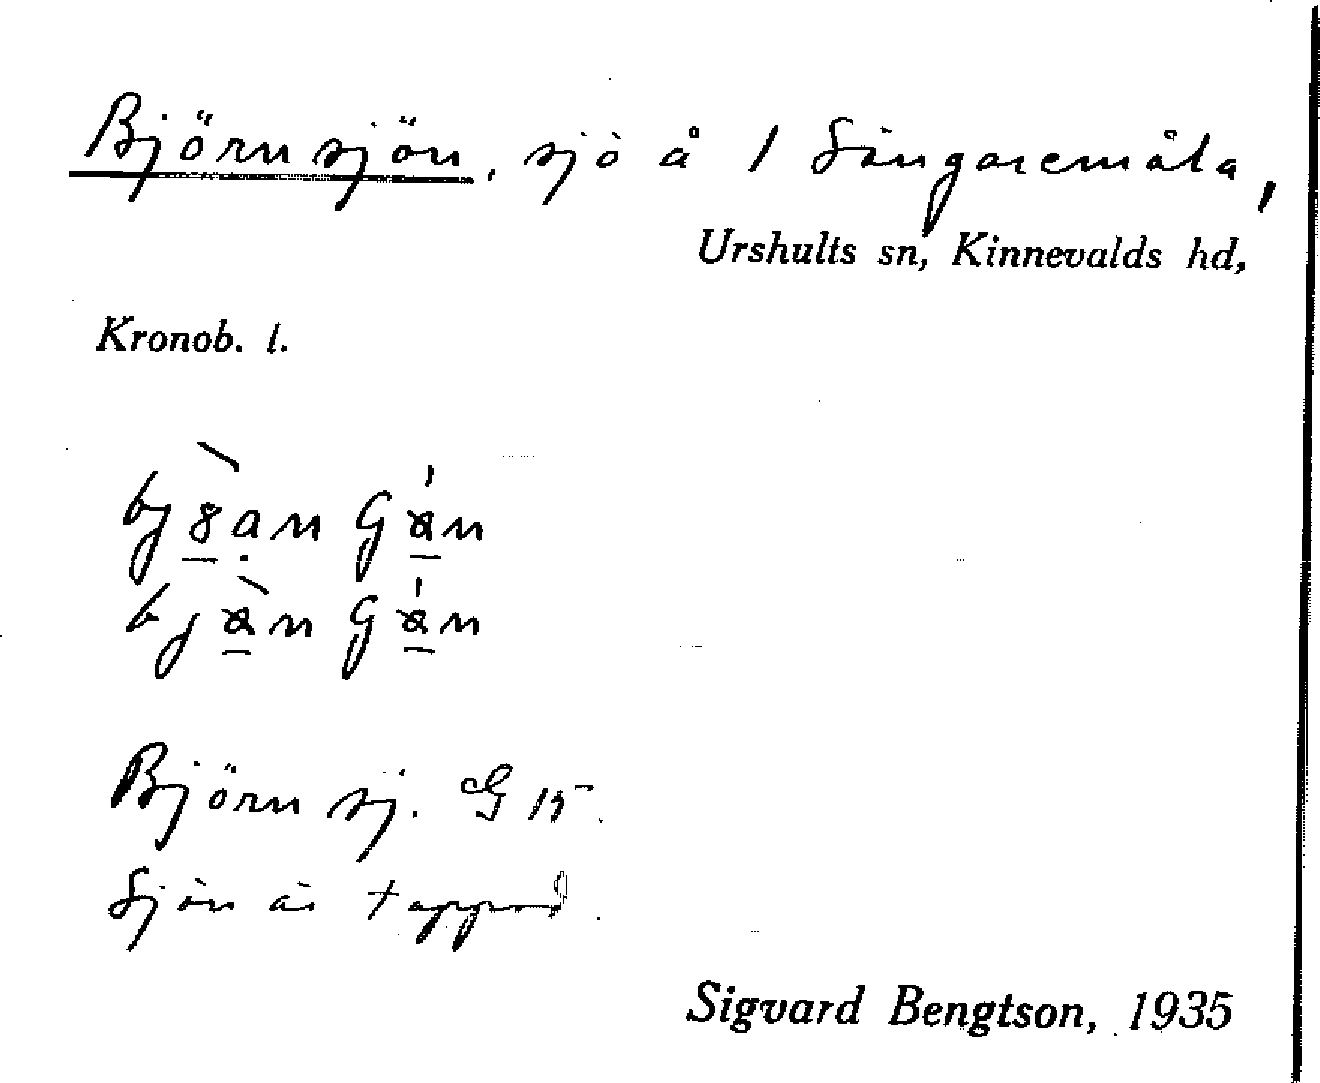 Björnsjön, sjö å 1 Sångaremåla,
Urshults sn, Kinnevalds hd,
Kronob. l.
Björnsj. G 15.
Sjön är tappad.
Sigvard Bengtson, 1935